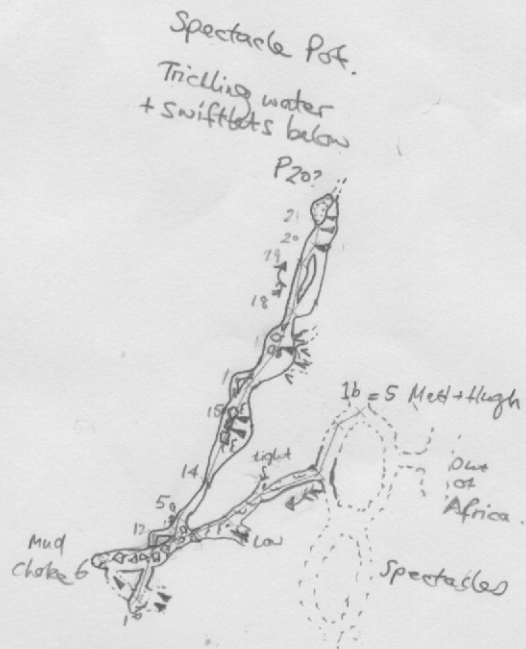 Spectacle Pot.
Trickling water
+ swiftlets below
P20?
21
20
19
18
1b = 5 Matt + Hugh
15
tight
14
Out
of
Africa.
5
12
Low
Mud
Choke 6
Spectacles